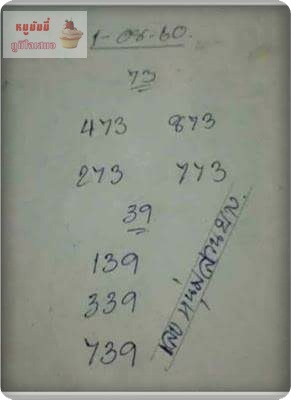 หมูบันนี่
ภูมิใจเสนอ
1-08-60.
73
473 873
273 773
39
139
339
739
เลขหนุ่มสวนยาง